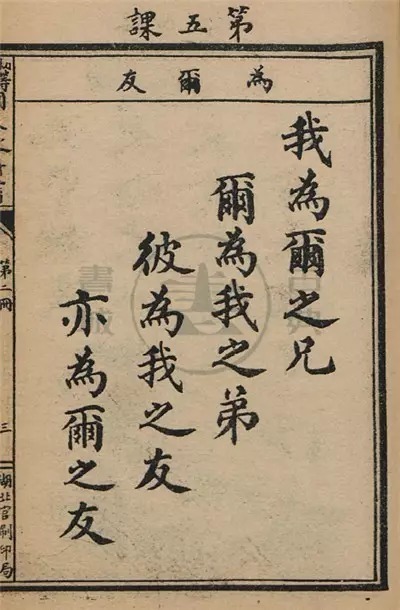 第五課
為爾友
我為爾之兄
爾為我之弟
彼為我之友
亦為爾之友
第二冊
三
湖北官刷印局